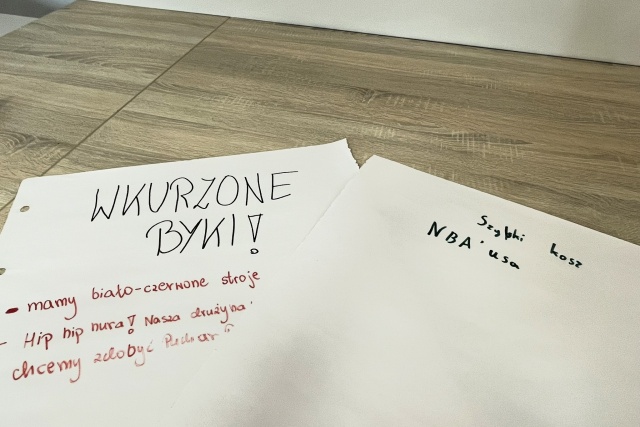 WKURZONE
BYKI!
- mamy biało-czerwone stroje
- Hip hip hura! Nasza drużyna
chcemy zdobyć Puchar
Szybki kosz
NBA'usa